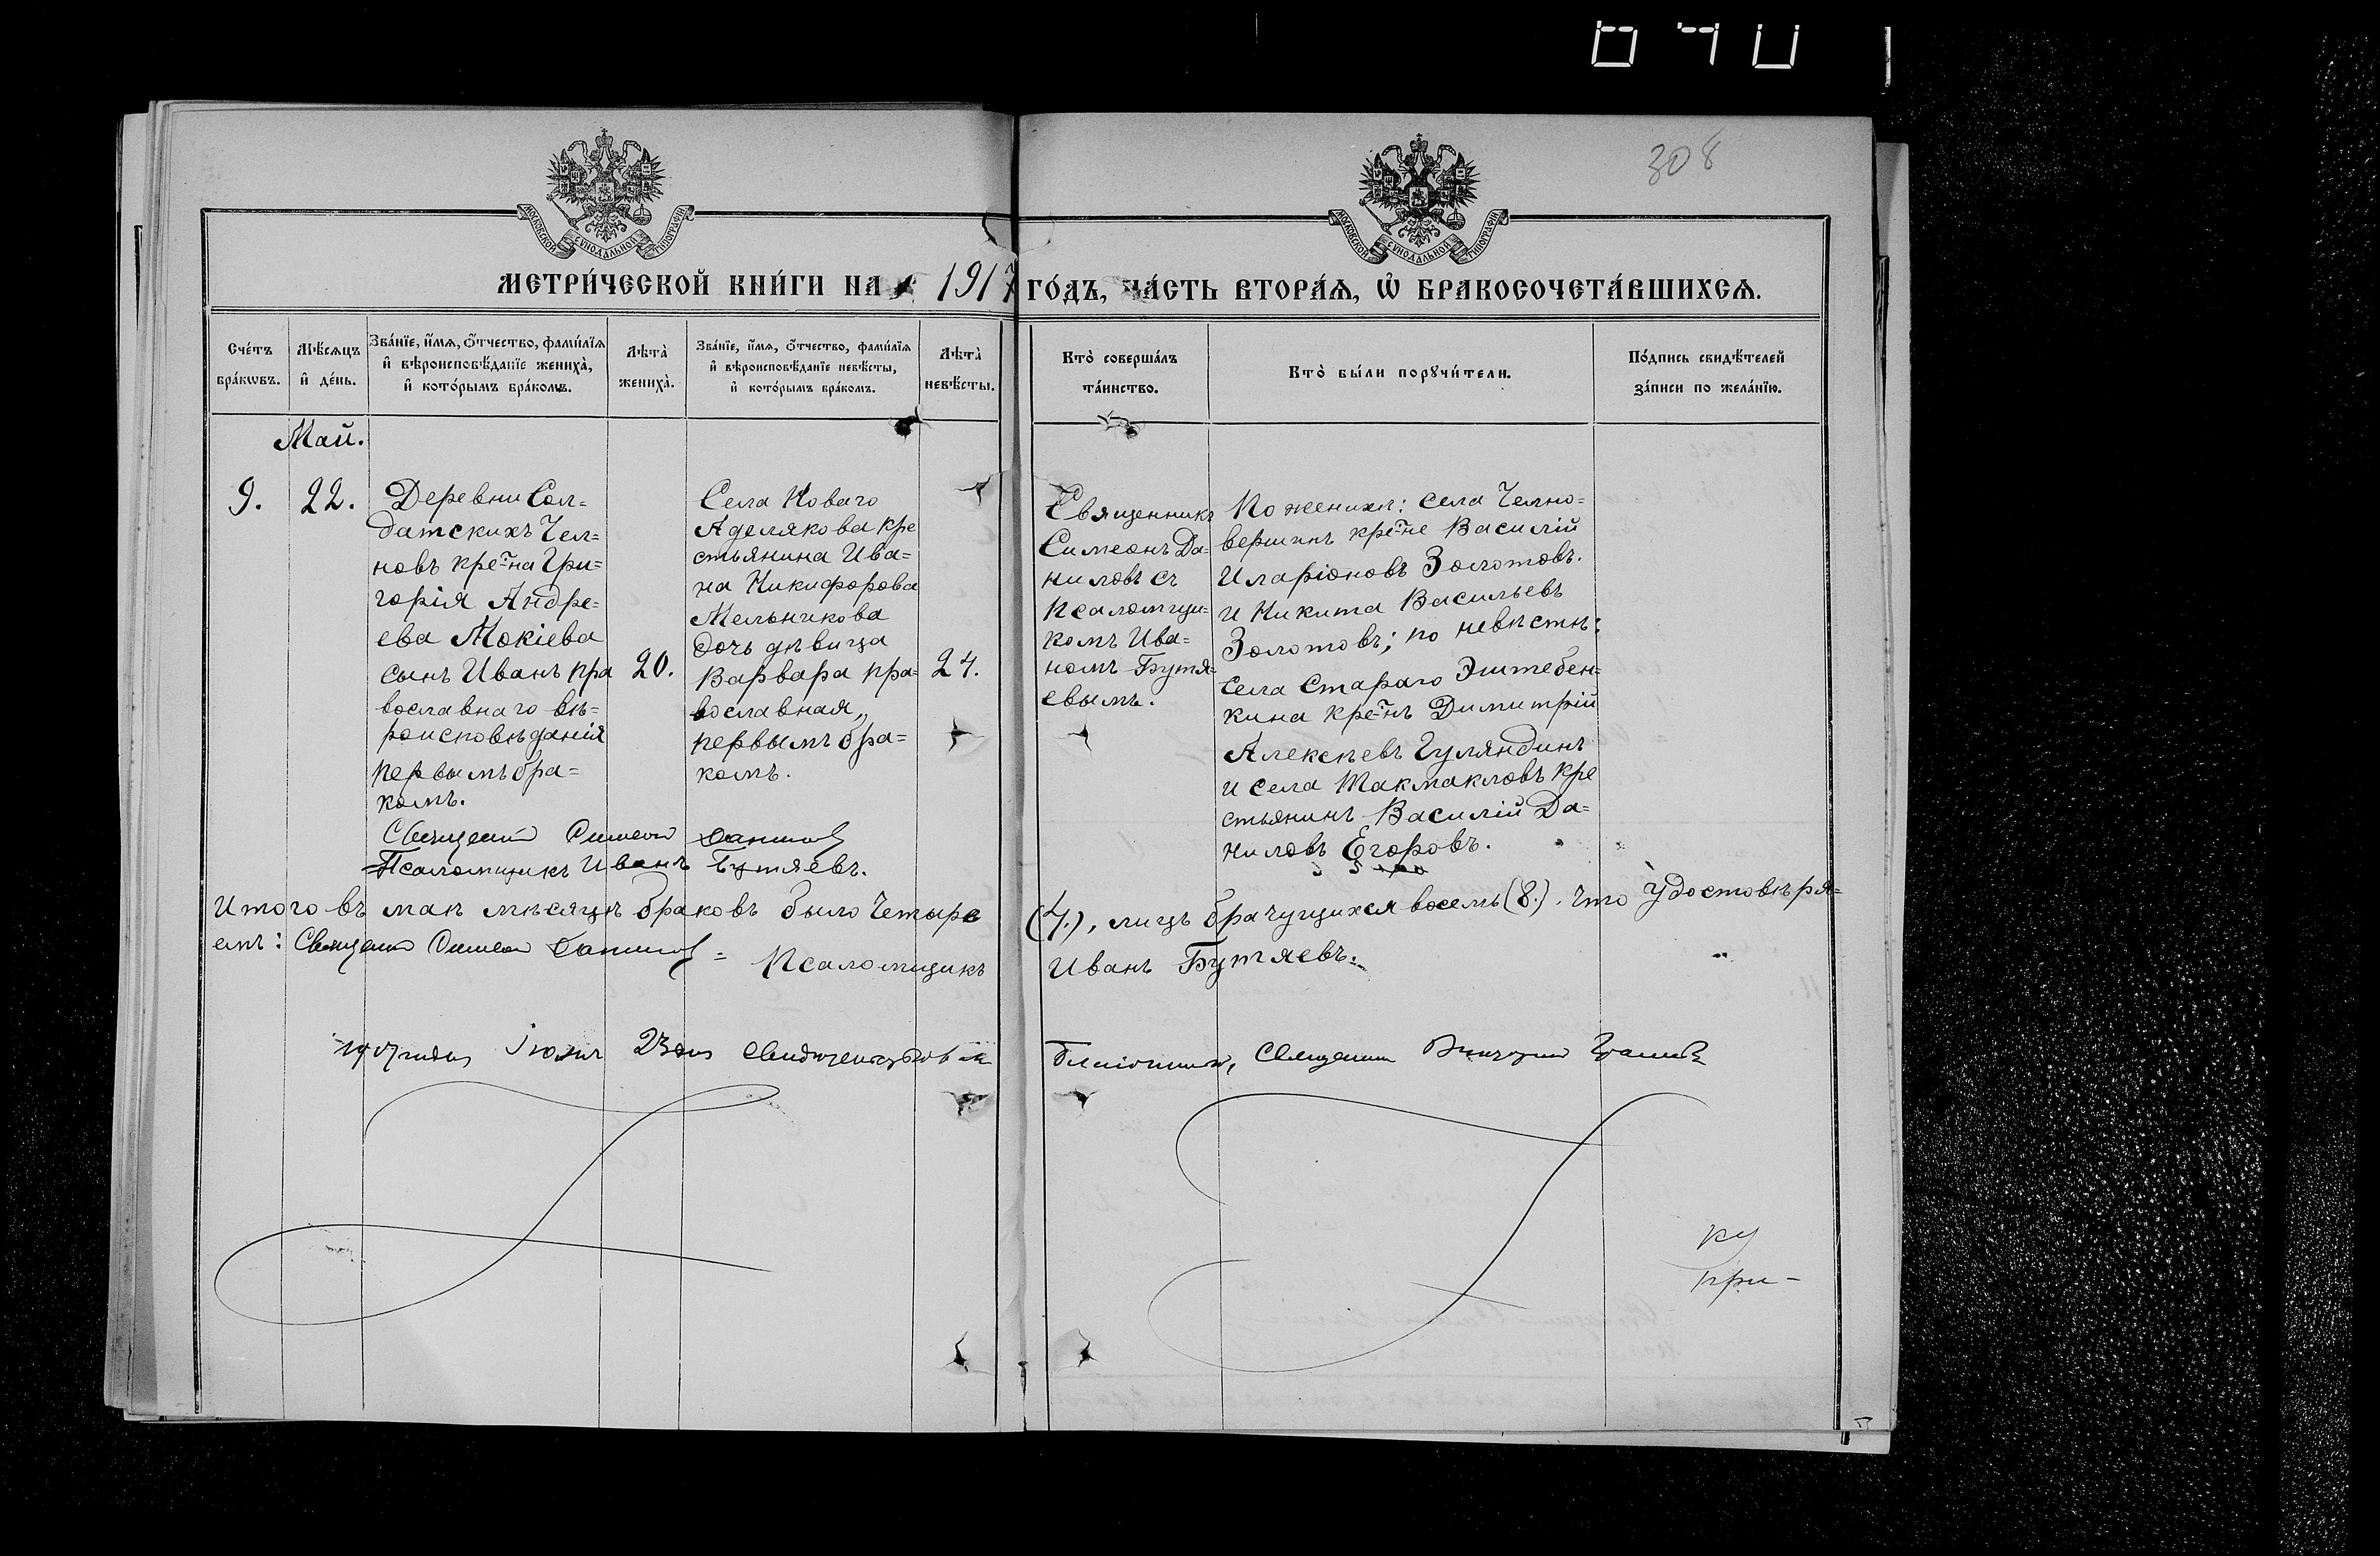 308
МОСКОВСКОЙ СУНОДАЛЬНОЙ ТИПОГРАФІИ
МОСКОВСКОЙ СУНОДАЛЬНОЙ ТИПОГРАФІИ
МЕТРИ́ЧЕСКОЙ КНИ́ГИ НА 1917 ГО́ДЪ, ЧА́СТЬ ВТОРА́Ѧ, Ѡ҆ БРАКОСОЧЕТА́ВШИХСѦ.
Сче́тъ бра́кѡвъ.
Мѣ́сѧцъ и҆ де́нь.
Зва́нїе, и҆́мѧ, ѻ҆́тчество, фами́лїѧ и҆ вѣроисповѣ́данїе жениха̀, и҆ кото́рымъ бра́комъ.
Лѣ̀та̀ жениха̀.
Зва́нїе, и҆́мѧ, ѻ҆́тчество, фами́лїѧ и҆ вѣроисповѣ́данїе невѣ́сты, и҆ кото́рымъ бра́комъ.
Лѣ̀та̀ невѣ́сты.
Кто̀ соверша́лъ та́инство.
Кто̀ бы́ли порꙋчи́тели.
По́дпись свидѣ́телей за́писи по жела́нїю.
Май.
9.
22.
Деревни Сол=
датскихъ Чел=
новъ кре-на Гри=
горія Андре=
ева Мокіева
сынъ Иванъ пра
вославнаго вѣ=
роисповѣданія
первымъ бра=
комъ.
20.
Села Новаго
Аделякова кре
стьянина Ива=
на Никифорова
Мельникова
дочь дѣвица
Варвара пра=
вославная,
первымъ бра=
комъ.
24.
Священникъ
Симеонъ Да=
ниловъ съ
Псаломщи=
комъ Ива=
номъ Бутя=
евымъ.
По женихѣ: села Челно=
вершинъ кре-не Василій
Иларіоновъ Золотовъ.
и Никита Васильевъ
Золотовъ; по невѣстѣ:
села Стараго Эштебен=
кина кре-нъ Димитрій
Алексѣевъ Гуляндинъ
и села Токмакловъ кре
стьянинъ Василій Да=
ниловъ Егоровъ.
Священник Симеон Данилов
Псаломщикъ Иванъ Бутяевъ.
Итого въ маѣ мѣсяцѣ браковъ было четыре (4.), лицъ брачущихся восемь (8.). Что удостовѣря=
емъ: Священник Симеон Данилов = Псаломщикъ Иванъ Бутяевъ.
1917 года Іюля 23 дня свидетельствовал Благочинный, Священник
при-